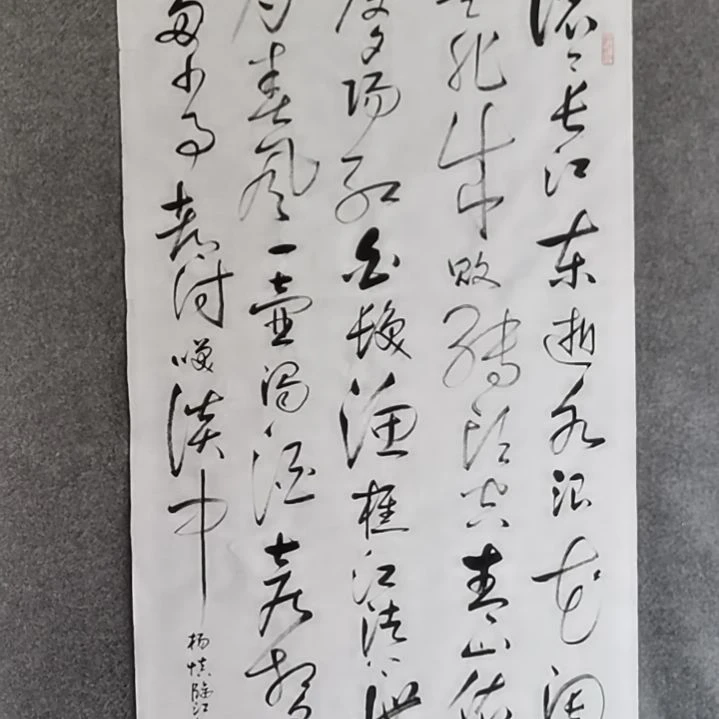 滚滚长江东逝水浪花淘
是非成败转头空青山依
度夕阳红白发渔樵江渚上惯
月春风一壶浊酒喜相
多少事都付笑谈中
杨慎临江